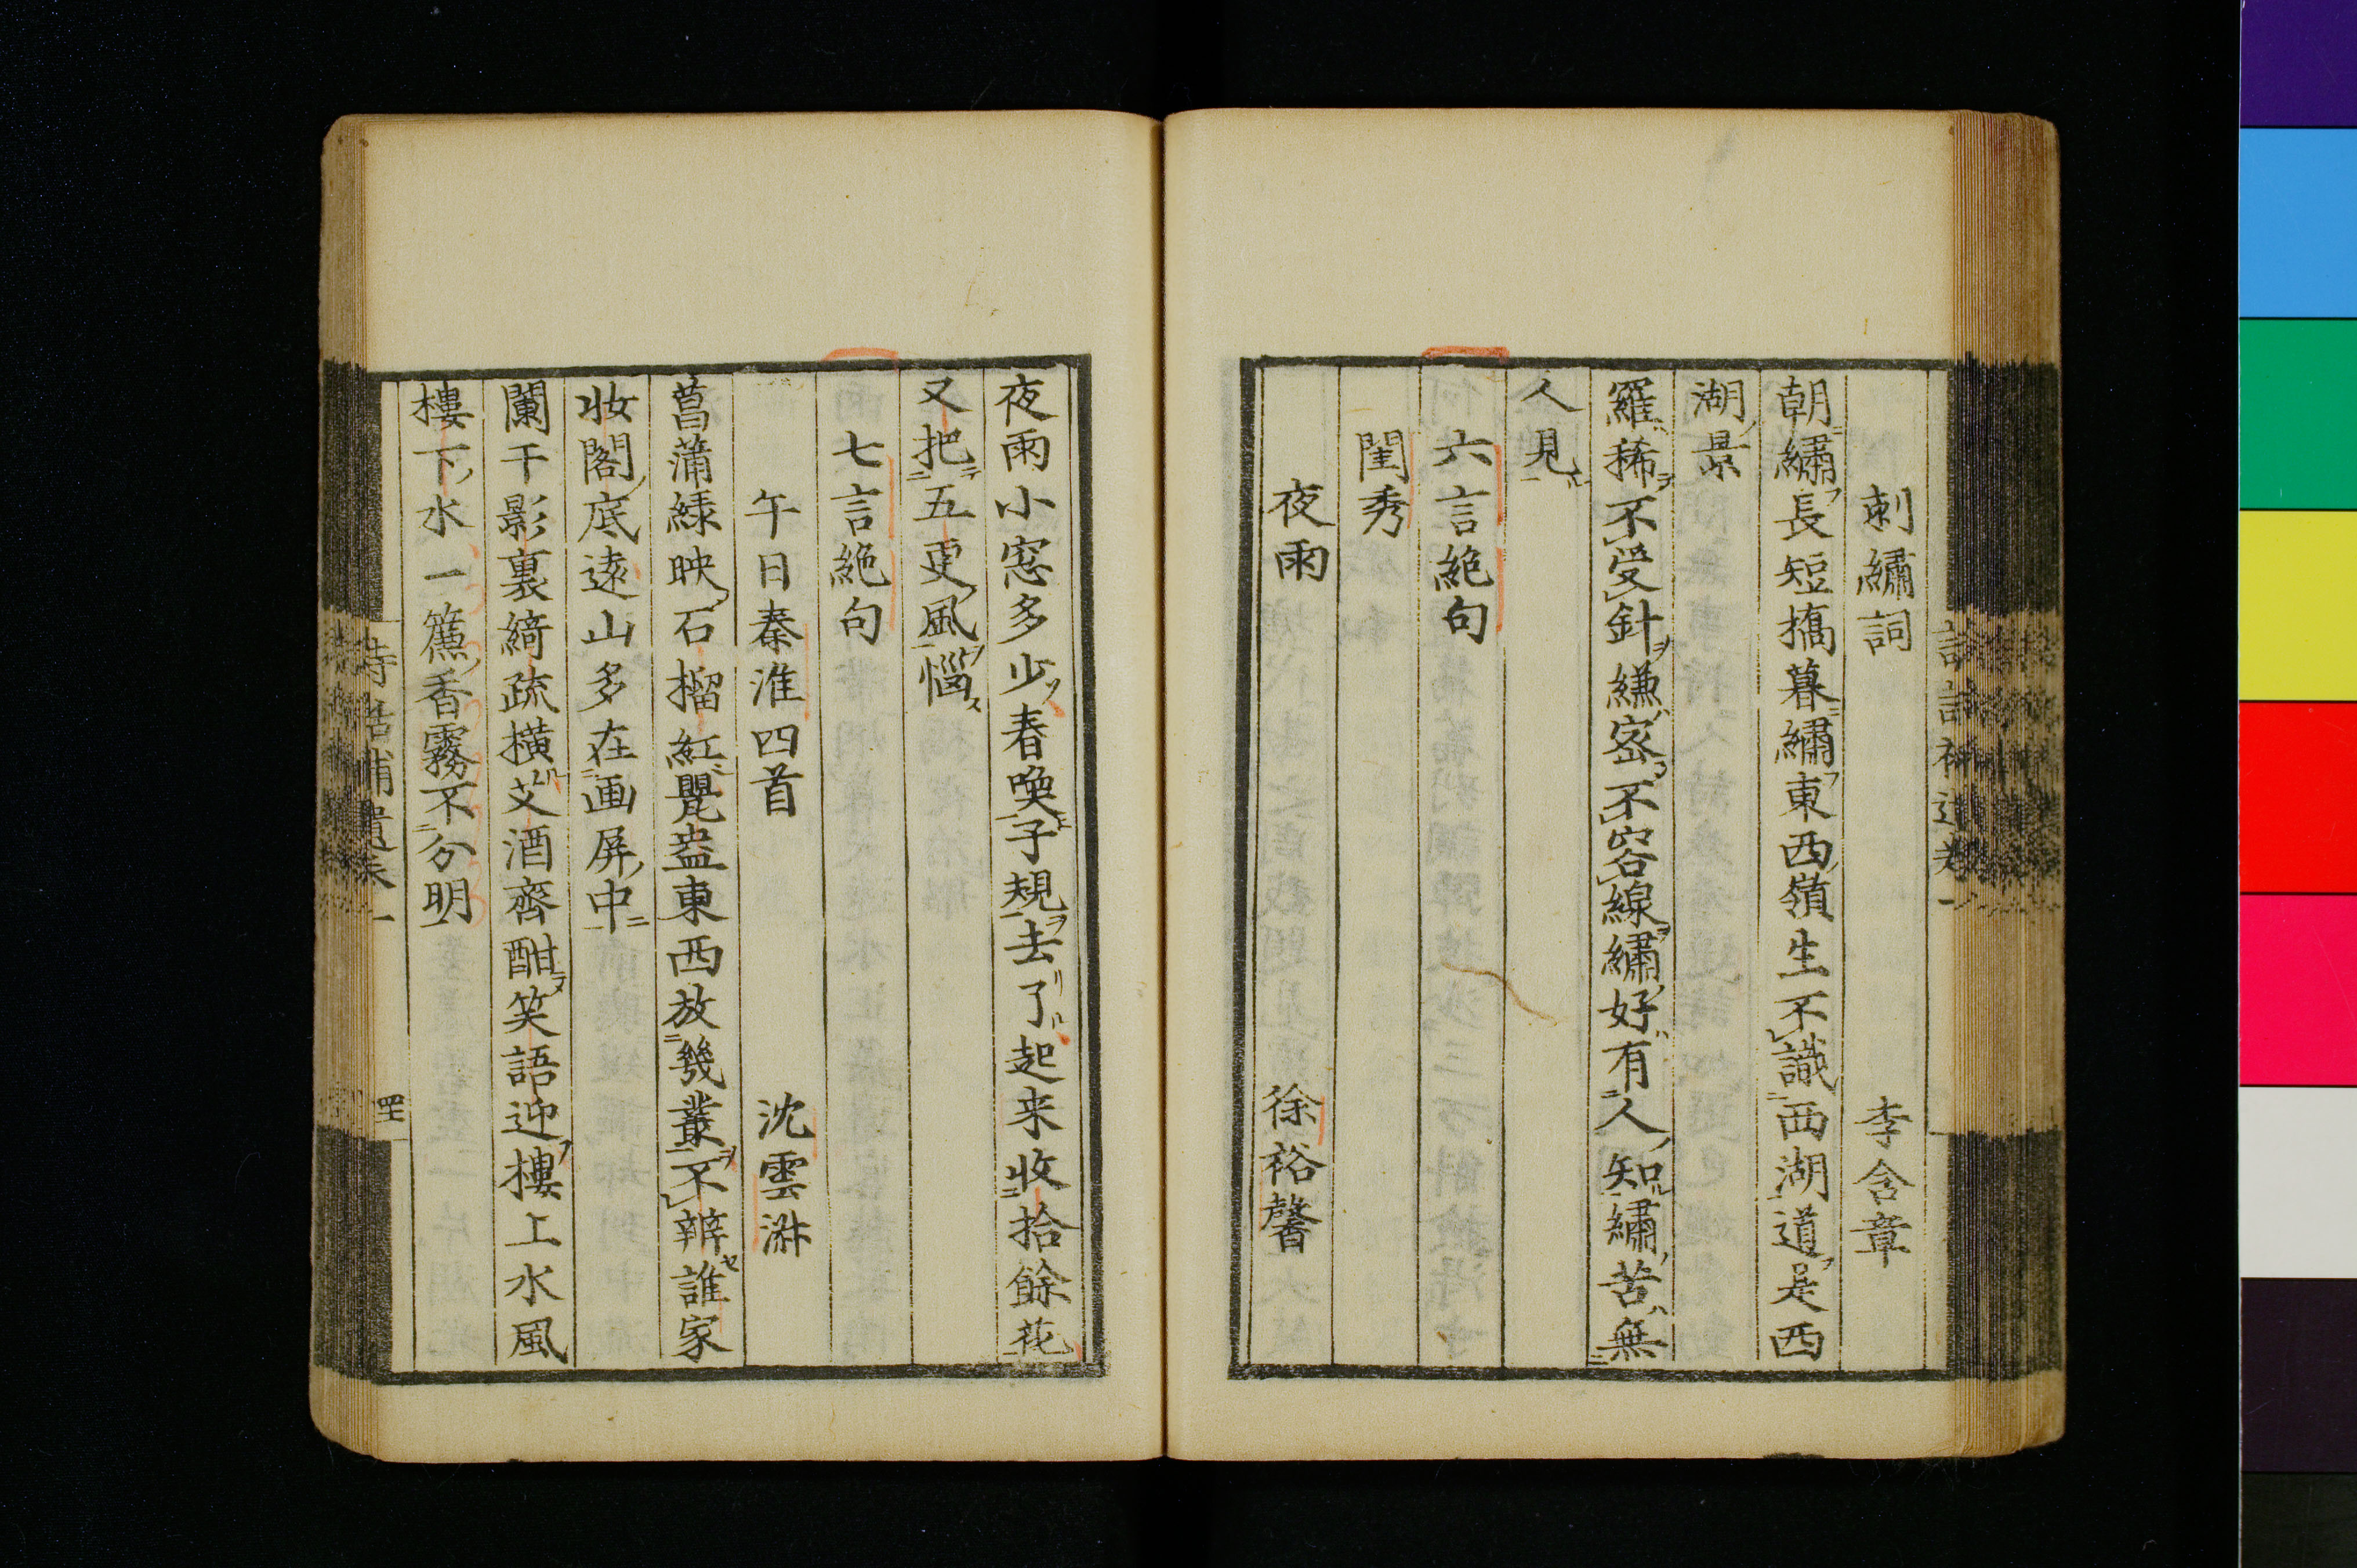 刺繡詞　李含章
朝繡長短搞暮繡東西嶺生不識西湖道是西
湖景
羅稀不受針縑密不容線繡好有人知繡苦無
人見
六言絶句
閨秀
夜雨　徐裕馨
夜雨小窓多少春喚子規去了起来收拾餘花
又把五更風惱
七言絶句
午日秦淮四首　沈雲
菖蒲緑映石榴紅甖盎東西放幾叢不辨誰家
妝閣底遠山多在画屏中
闌干影裏綺疏横艾酒齊酣笑語迎樓上水風
樓下水一簾香霧不分明